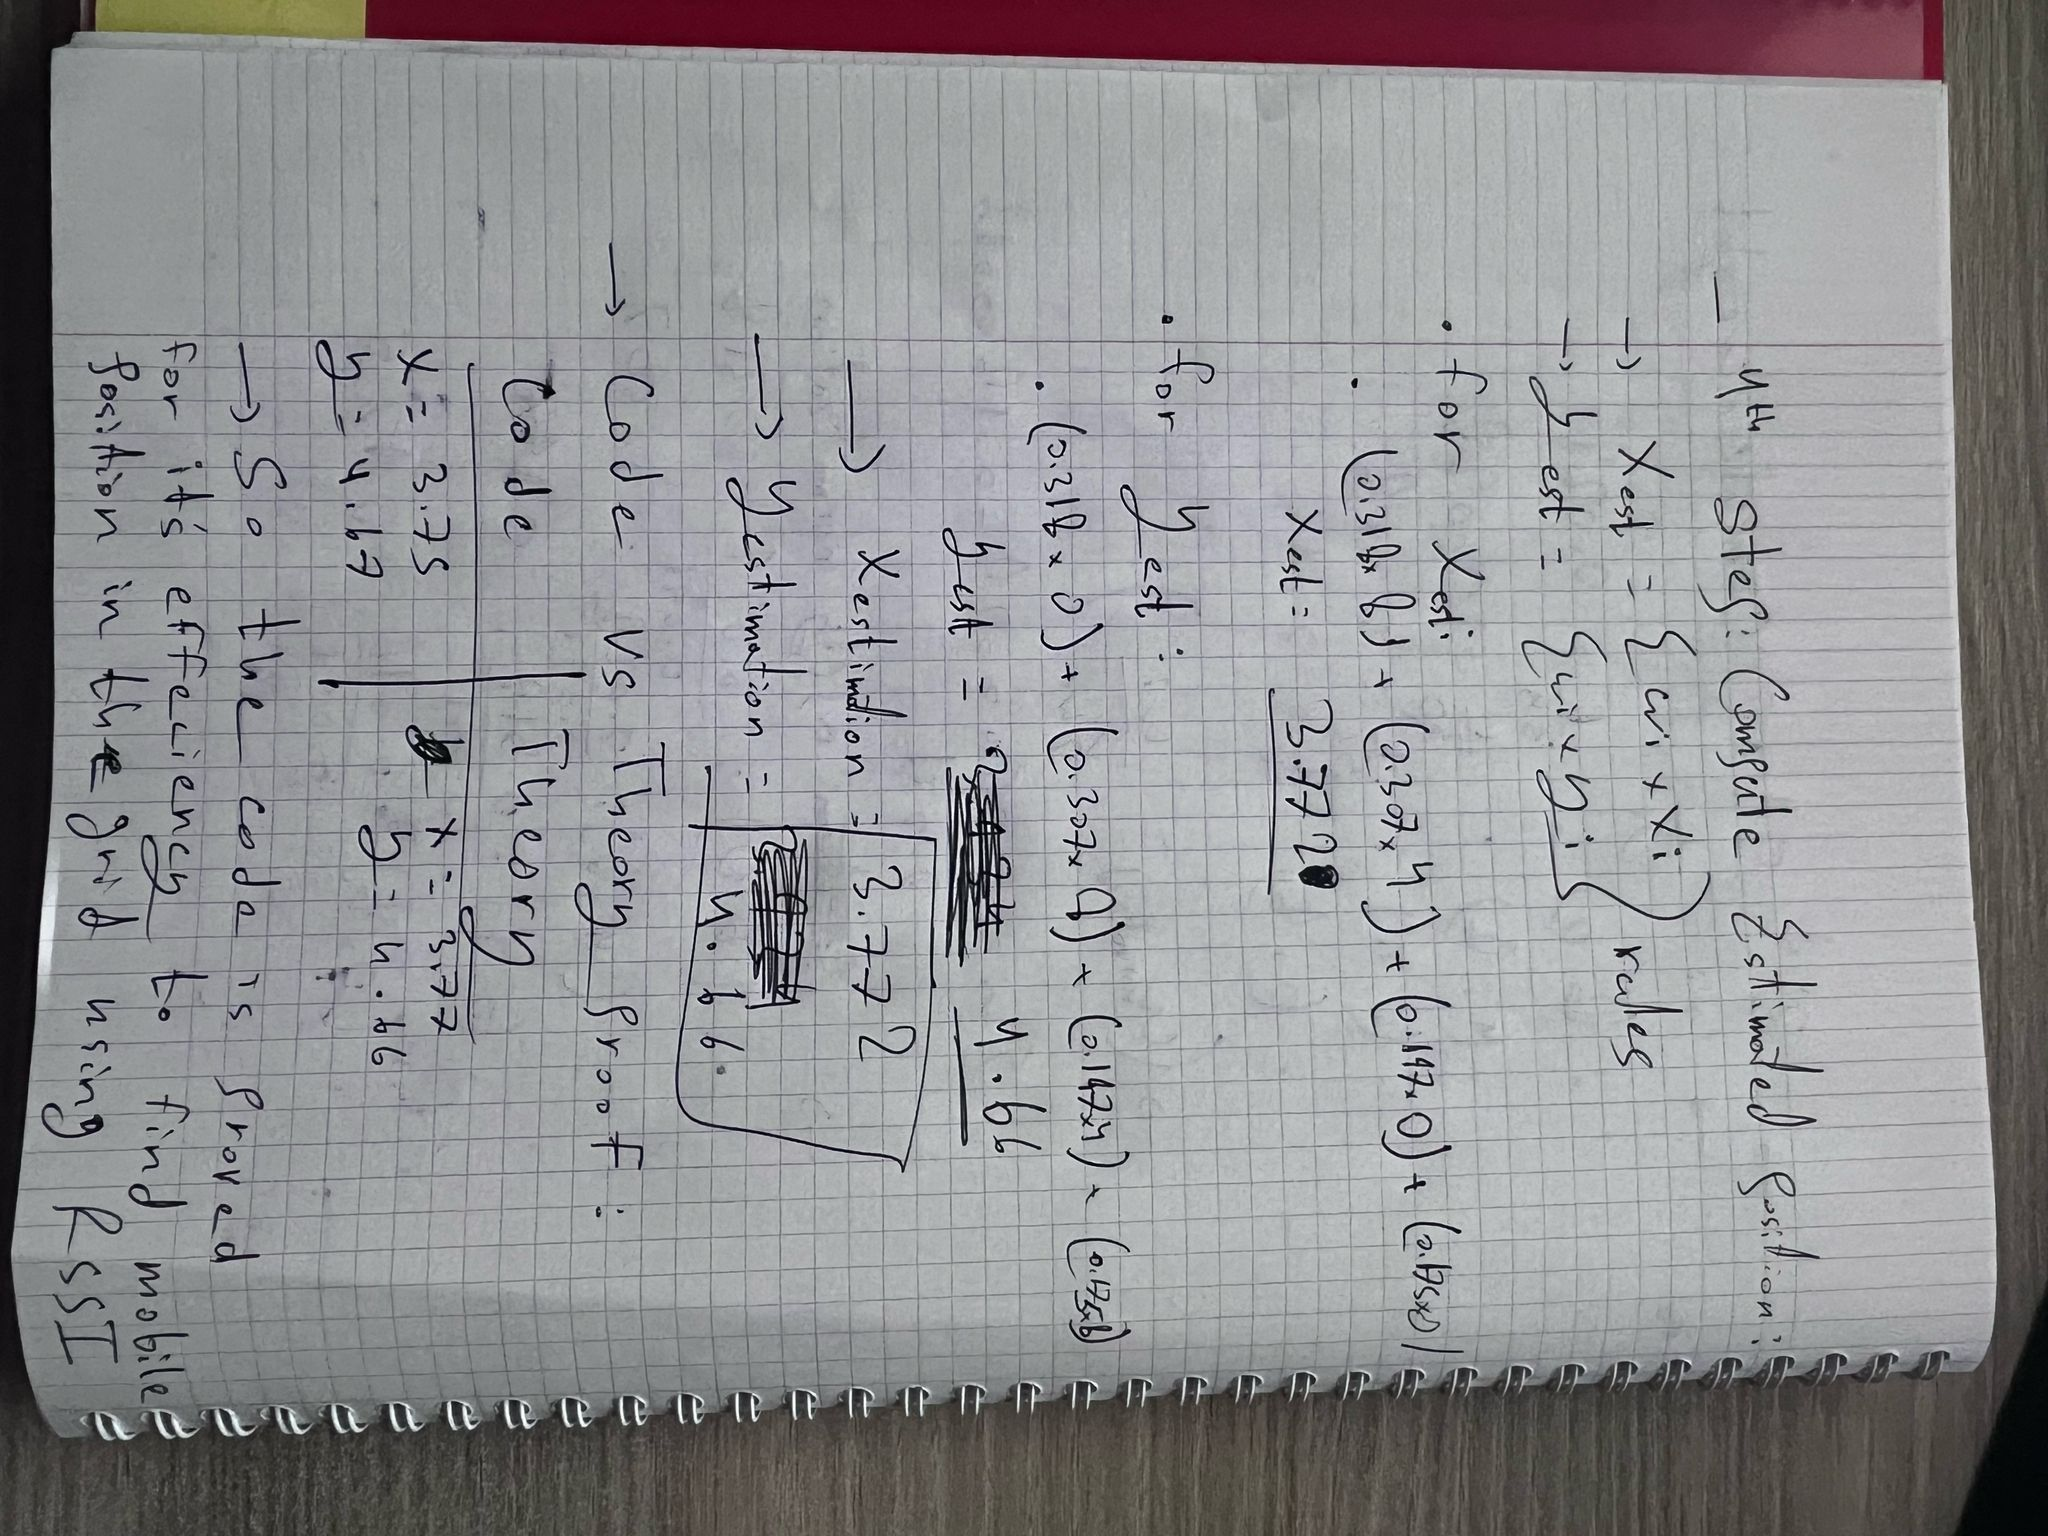 - 4th Step: Compute Estimated position:
→ Xest = Σ wi × Xi
→ yest = Σ wi × yi } rules
• for Xest:
• (0.318×8) + (0.307×4) + (0.197×0) + (0.175×0)
Xest = 3.772
• for yest:
• (0.318×0) + (0.307×4) + (0.197×4) + (0.175×8)
yest = 4.66
→ Xestimation = 3.772
→ yestimation = 4.66
→ Code vs Theory proof:
Code Theory
x = 3.75 x = 3.77
y = 4.67 y = 4.66
→ So the code is proved
for it's effeciency to find mobile
position in the grid using RSSI